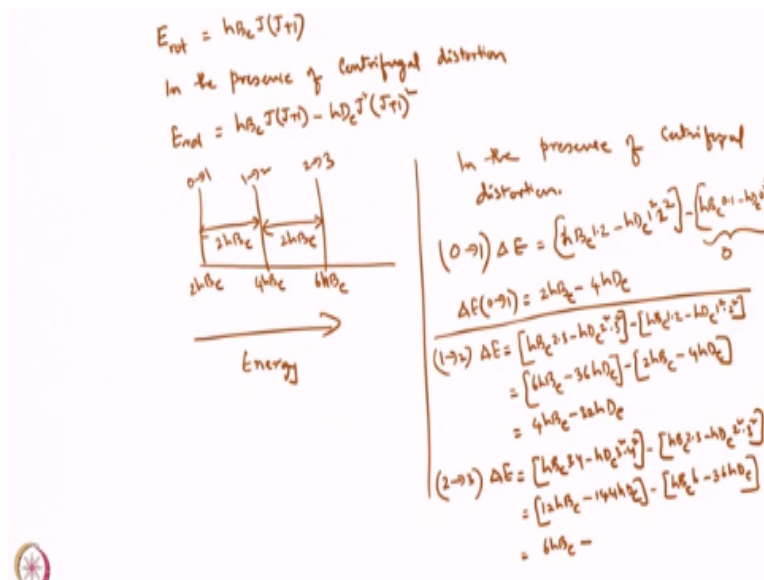 E_rot = hB_e J(J+1)
In the presence of Centrifugal distortion
E_rot = hB_e J(J+1) - hD_e J²(J+1)²
0→1 1→2 2→3
2hB_e 2hB_e
2hB_e 4hB_e 6hB_e
Energy
In the presence of Centrifugal
distortion.
(0→1) ΔE = [hB_e 1.2 - hD_e 1².2²] - [hB_e 0.1 - hD_e 0²
0
ΔE(0→1) = 2hB_e - 4hD_e
(1→2) ΔE = [hB_e 2.3 - hD_e 2².3²] - [hB_e 1.2 - hD_e 1².2²]
= [6hB_e - 36hD_e] - [2hB_e - 4hD_e]
= 4hB_e - 32hD_e
(2→3) ΔE = [hB_e 3.4 - hD_e 3².4²] - [hB_e 2.3 - hD_e 2².3²]
= [12hB_e - 144hD_e] - [hB_e 6 - 36hD_e]
= 6hB_e -